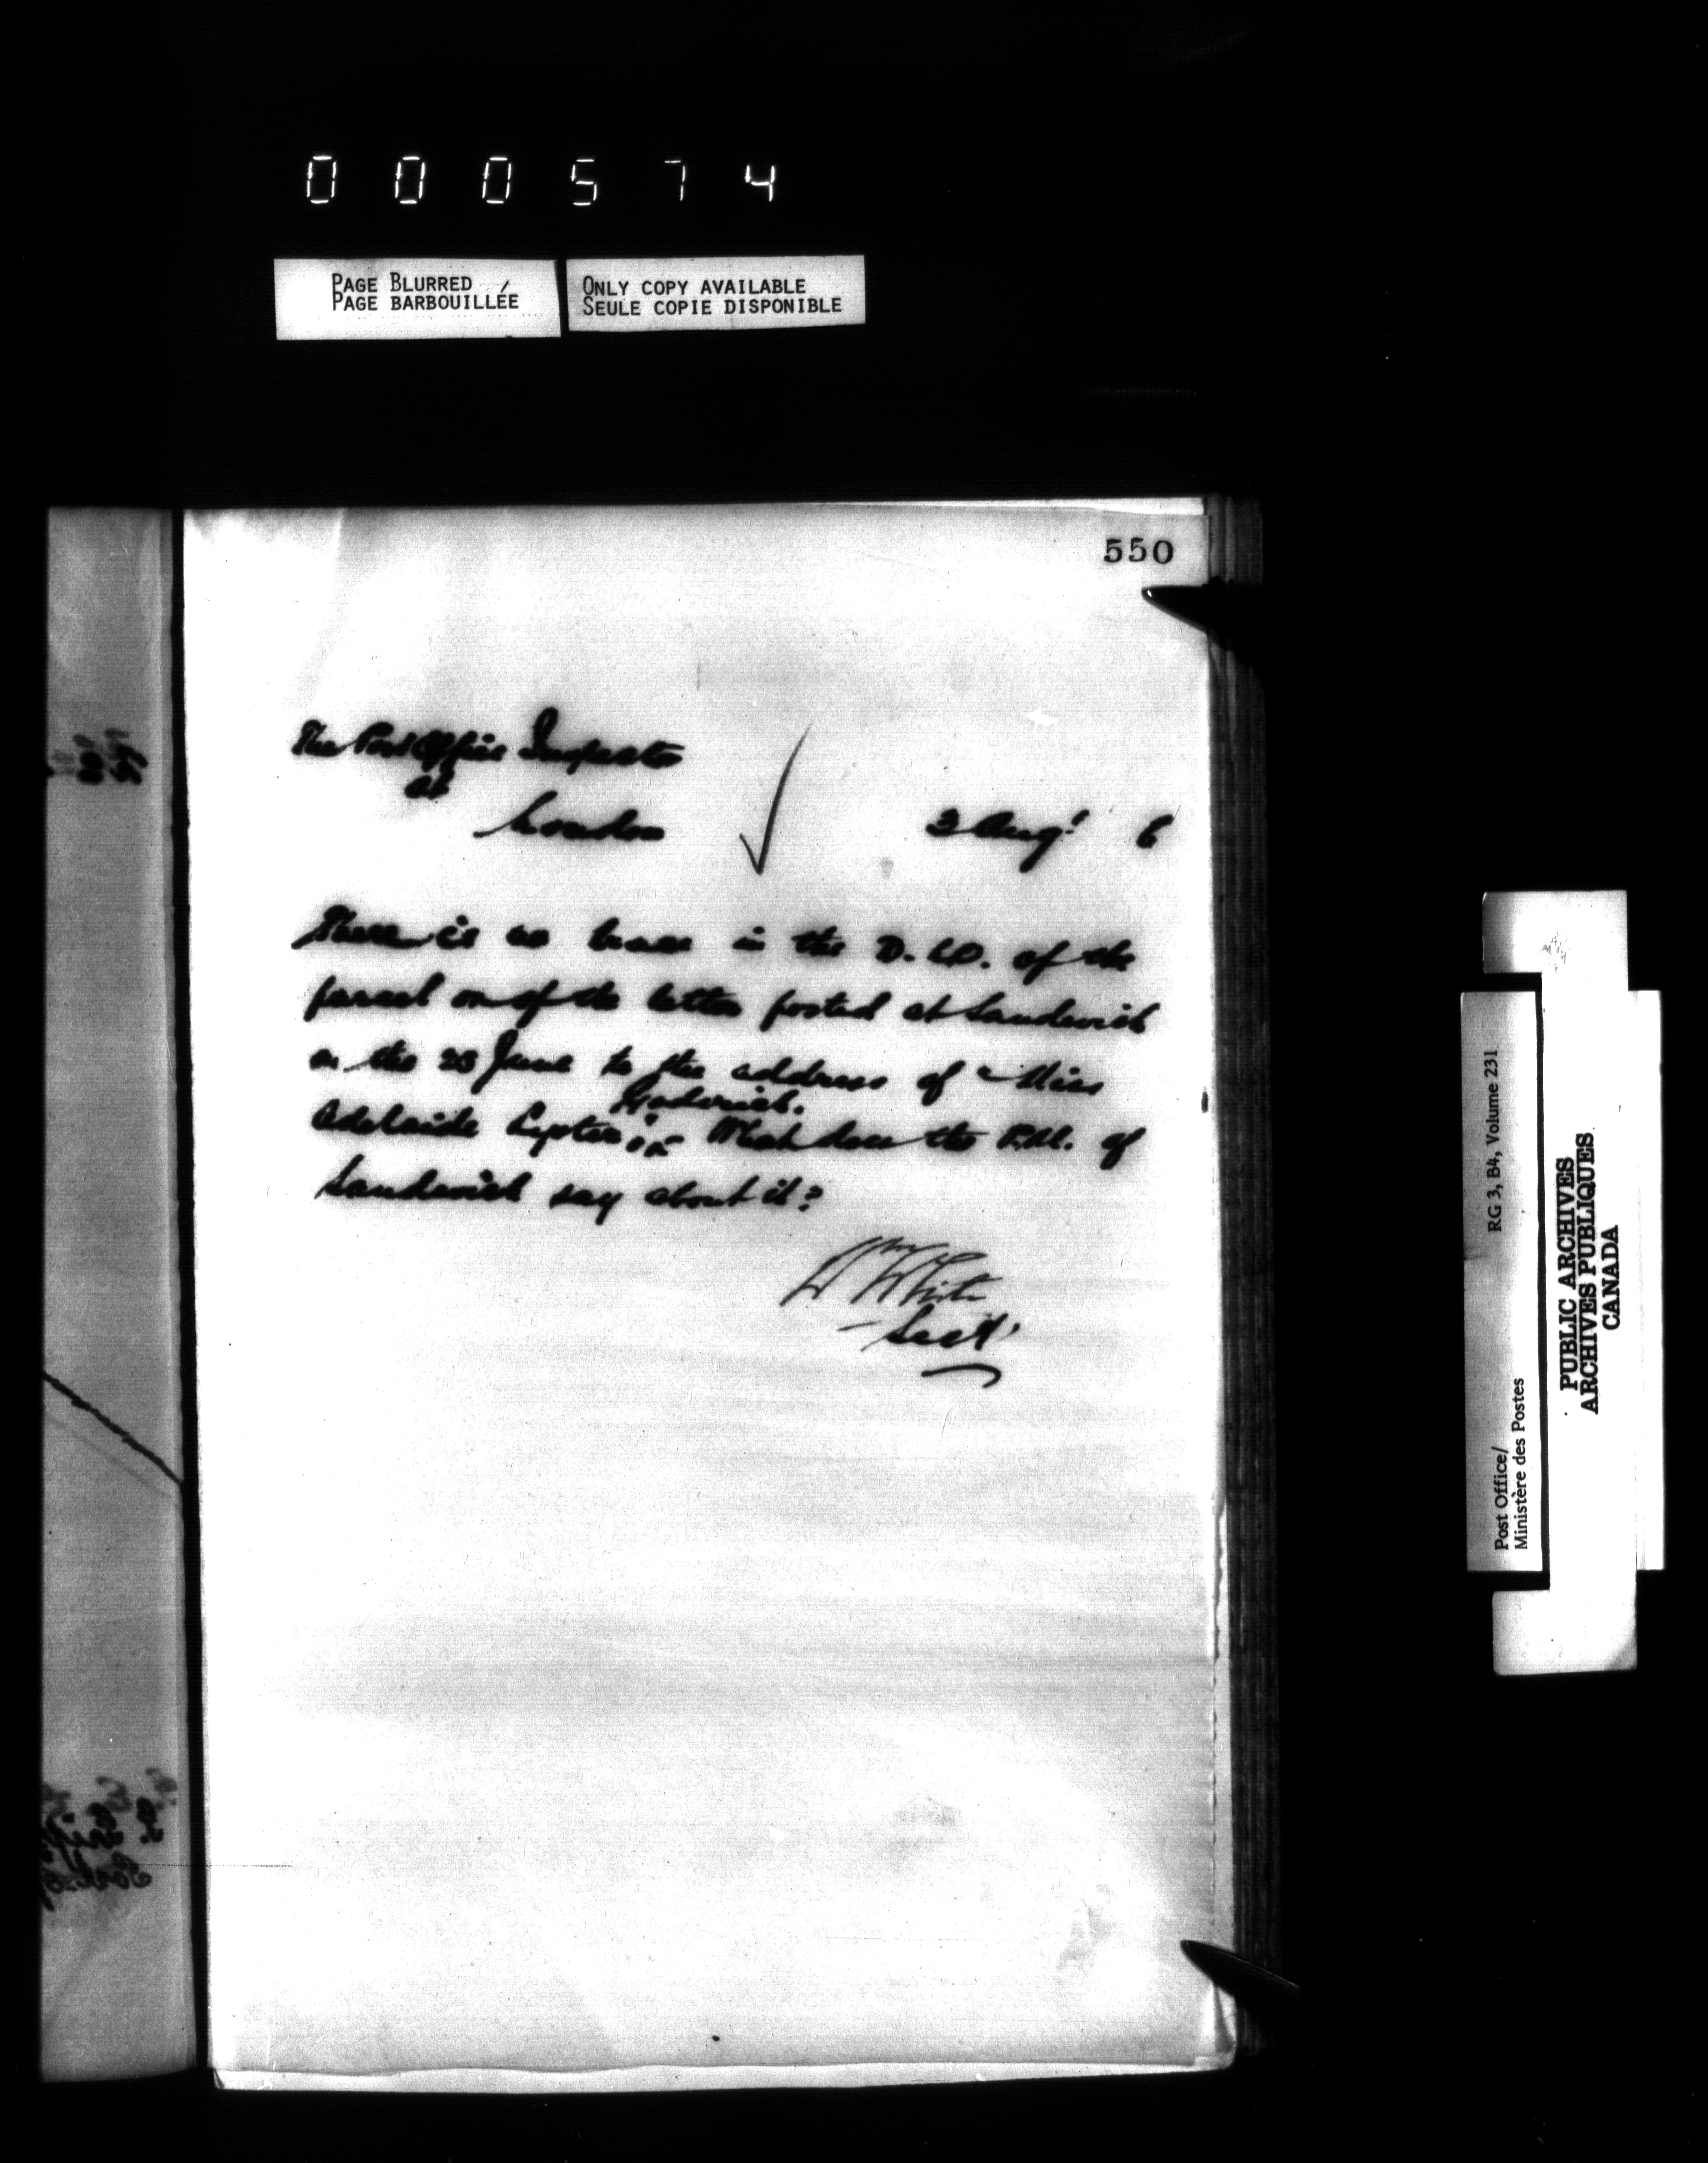 000574
PAGE BLURRED
PAGE BARBOUILLÉE
ONLY COPY AVAILABLE
SEULE COPIE DISPONIBLE
550
The Post Office Inspector
at
London
3 Augt 6
There is no trace in the D.L.O. of the
parcel or of the letter posted at Sandwich
on the 23 June to the address of "Miss
Goderich.
Adelaide What does the P.M. of
Sandwich say about it?
Wm White
Secy
Post Office/
Ministère des Postes
RG 3, B4, Volume 231
PUBLIC ARCHIVES
ARCHIVES PUBLIQUES
CANADA